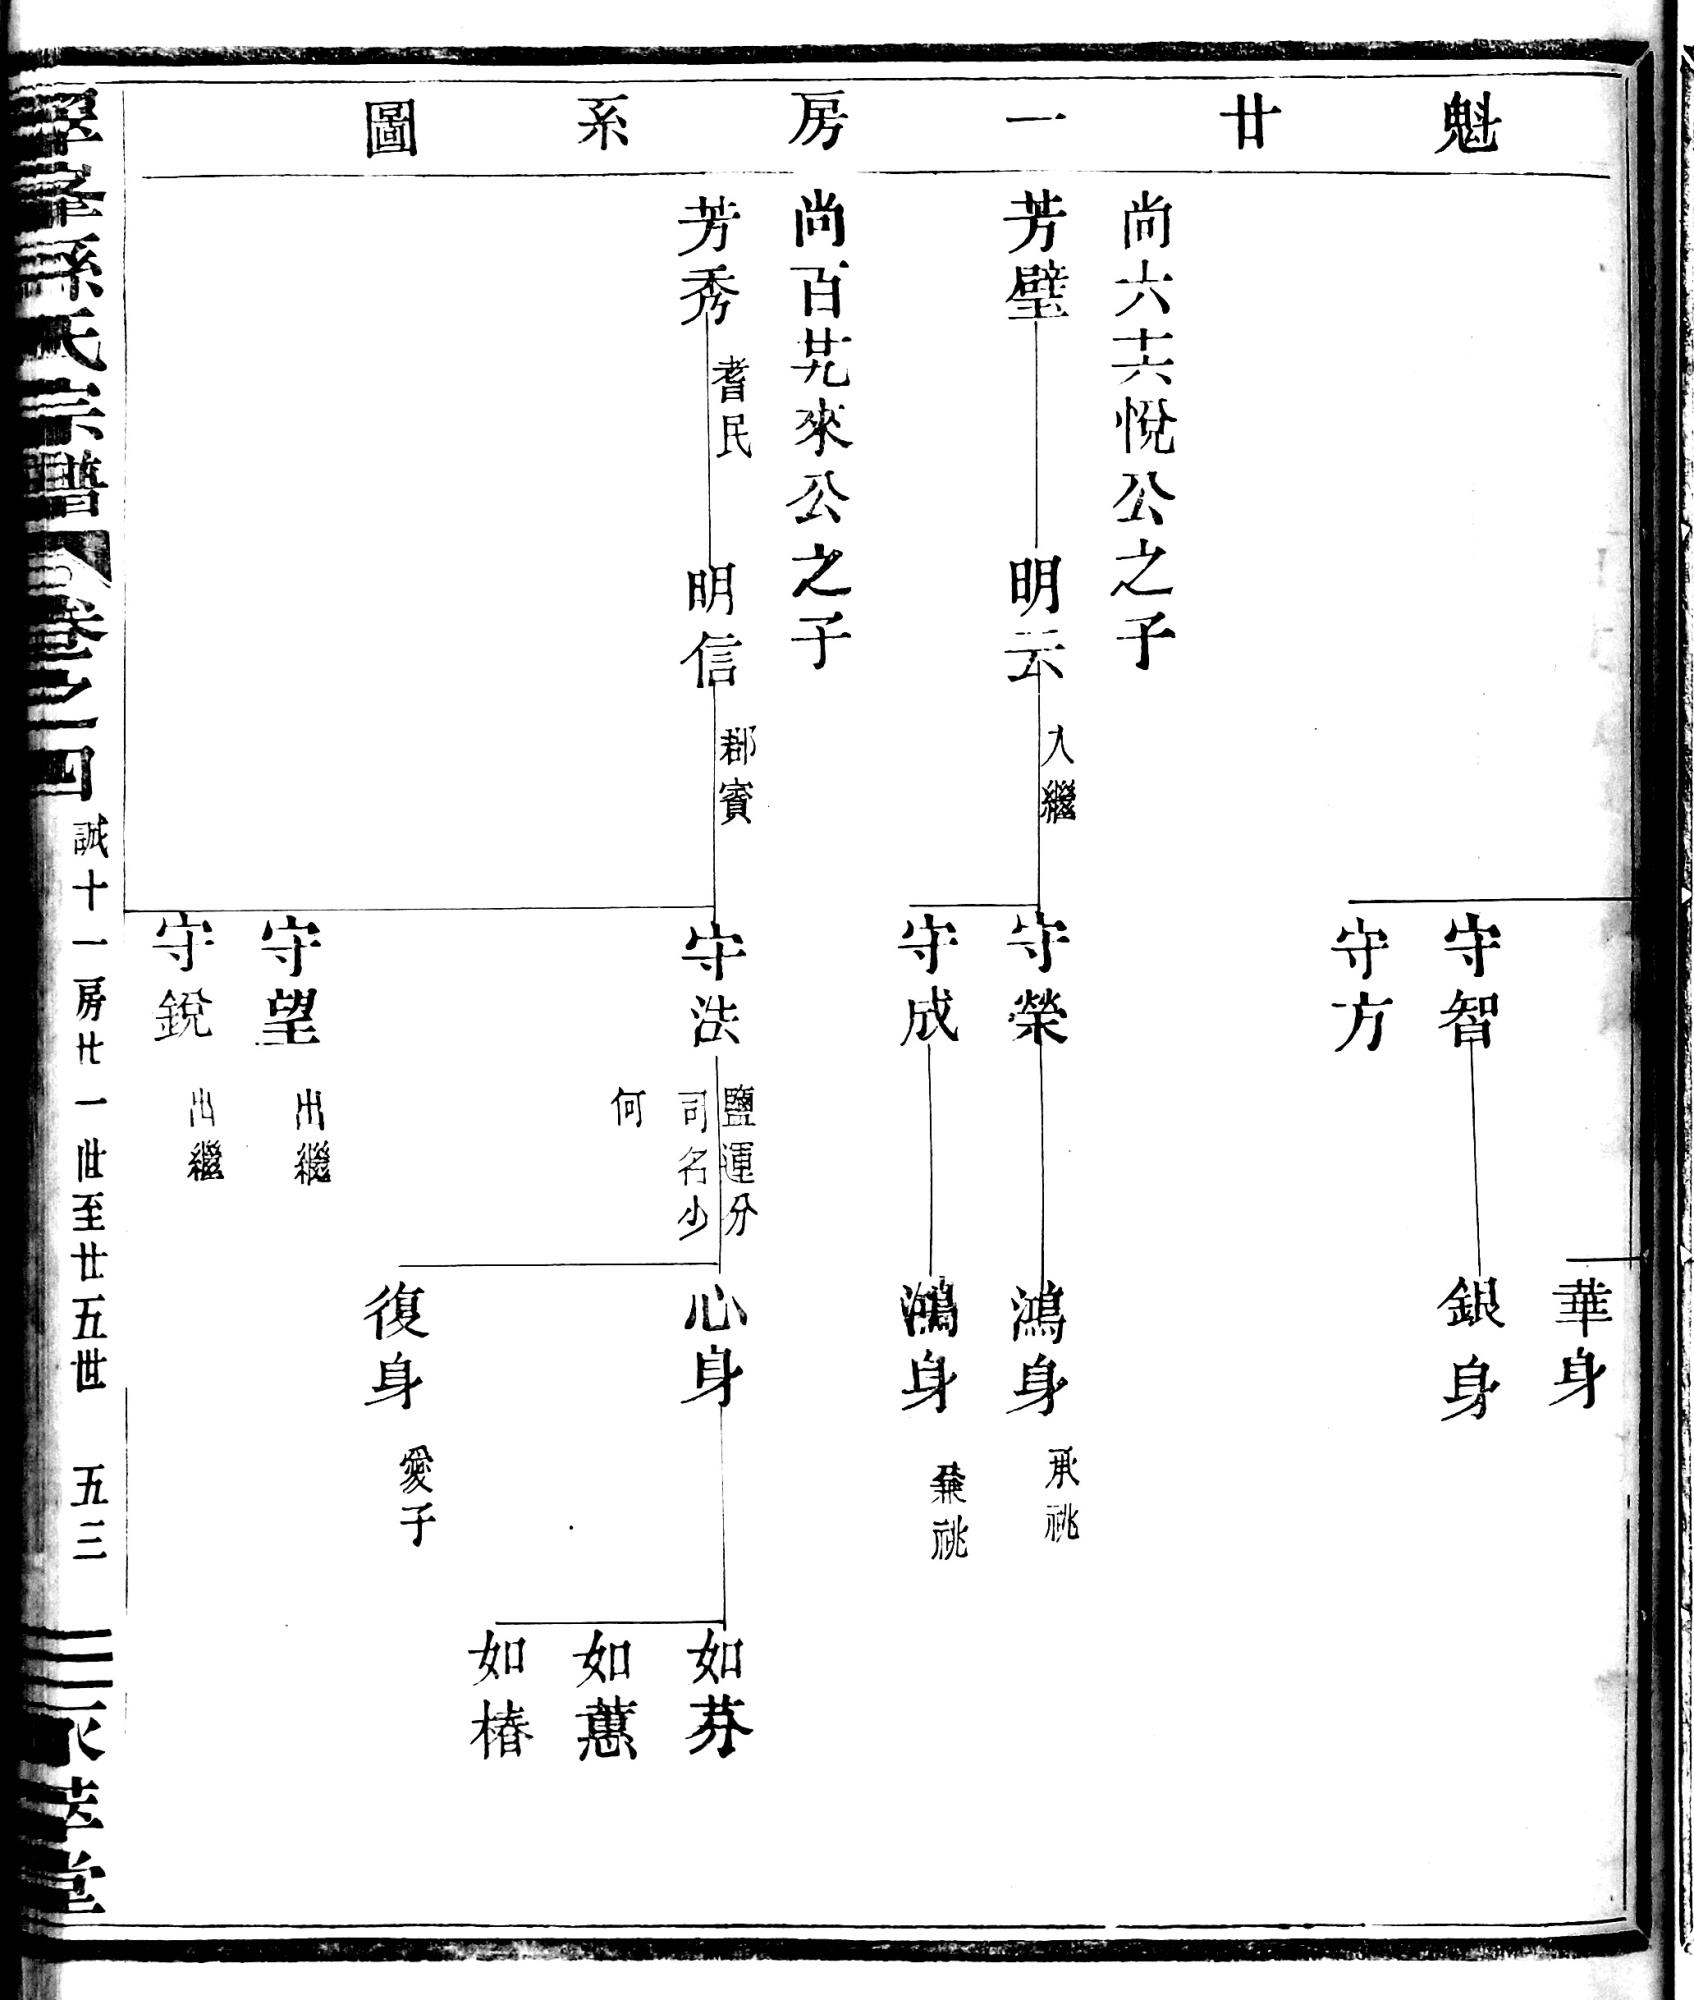 魁廿一房系圖
華身
守智
銀身
守方
尚六十六悅公之子
芳璧
明云
入繼
守榮
鴻身
承祧
守成
鴻身
兼祧
尚百廿九來公之子
芳秀
耆民
明信
郡賓
守法
鹽運分
司名少
何
心身
如芬
如蕙
如椿
復身
愛子
守望
出繼
守銳
出繼
峯孫氏宗譜
卷之四
誠十一房廿一世至廿五世
五三
萃堂